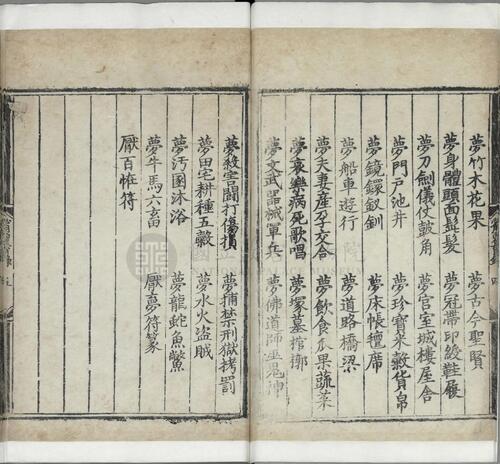 夢竹木花果　夢古今聖賢
夢身體頭面髭髮　夢冠帶印綬鞋屨
夢刀劍儀仗皷角　夢宮室城樓屋舍
夢門戸池井　夢珍寶米糓貨帛
夢鏡鐶釵釧　夢床帳氊席
夢船車遊行　夢道路橋梁
夢夫妻産孕交合　夢飲食瓜果蔬菜
夢哀樂病死歌唱　夢塚墓棺槨
夢文武器械軍兵　夢佛道師巫鬼神
夢殺害鬪打傷損　夢捕禁刑獄拷罰
夢田宅耕種五糓　夢水火盜賊
夢汚圂沐浴　夢龍蛇魚鱉
夢牛馬六畜　厭夢符篆
厭百恠符